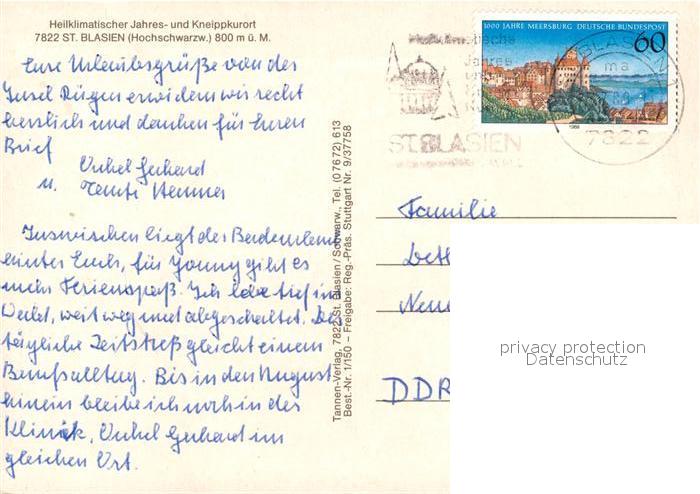 Heilklimatischer Jahres- und Kneippkurort
7822 ST. BLASIEN (Hochschwarzw.) 800 m ü. M.
Eure Urlaubsgrüße von der
Insel Rügen erwidern wir recht
herzlich und danken für Ihren
Brief
Onkel Gerhard
u. Tante Hemma
Inzwischen liegt der
hinter Euch, für Young gibt es
mehr Ferienspaß. Ich lebe tief im
Wald, weit weg und abgeschaltet. Der
tägliche Zeitstreß gleicht einem
Berufsalltag. Bis in den August
hinein bleibe ich noch in der
Klinik, Onkel Gerhard im
gleichen Ort.
Tannen-Verlag, 7822 St. Blasien / Schwarzw., Tel. (07672) 613
Best.-Nr. 1/150 – Freigabe: Reg.-Präs. Stuttgart Nr. 9/37758
1000 JAHRE MEERSBURG DEUTSCHE BUNDESPOST
60
1988
ST. BLASIEN
BLASIEN
ma
7822
Familie
DDR
privacy protection
Datenschutz